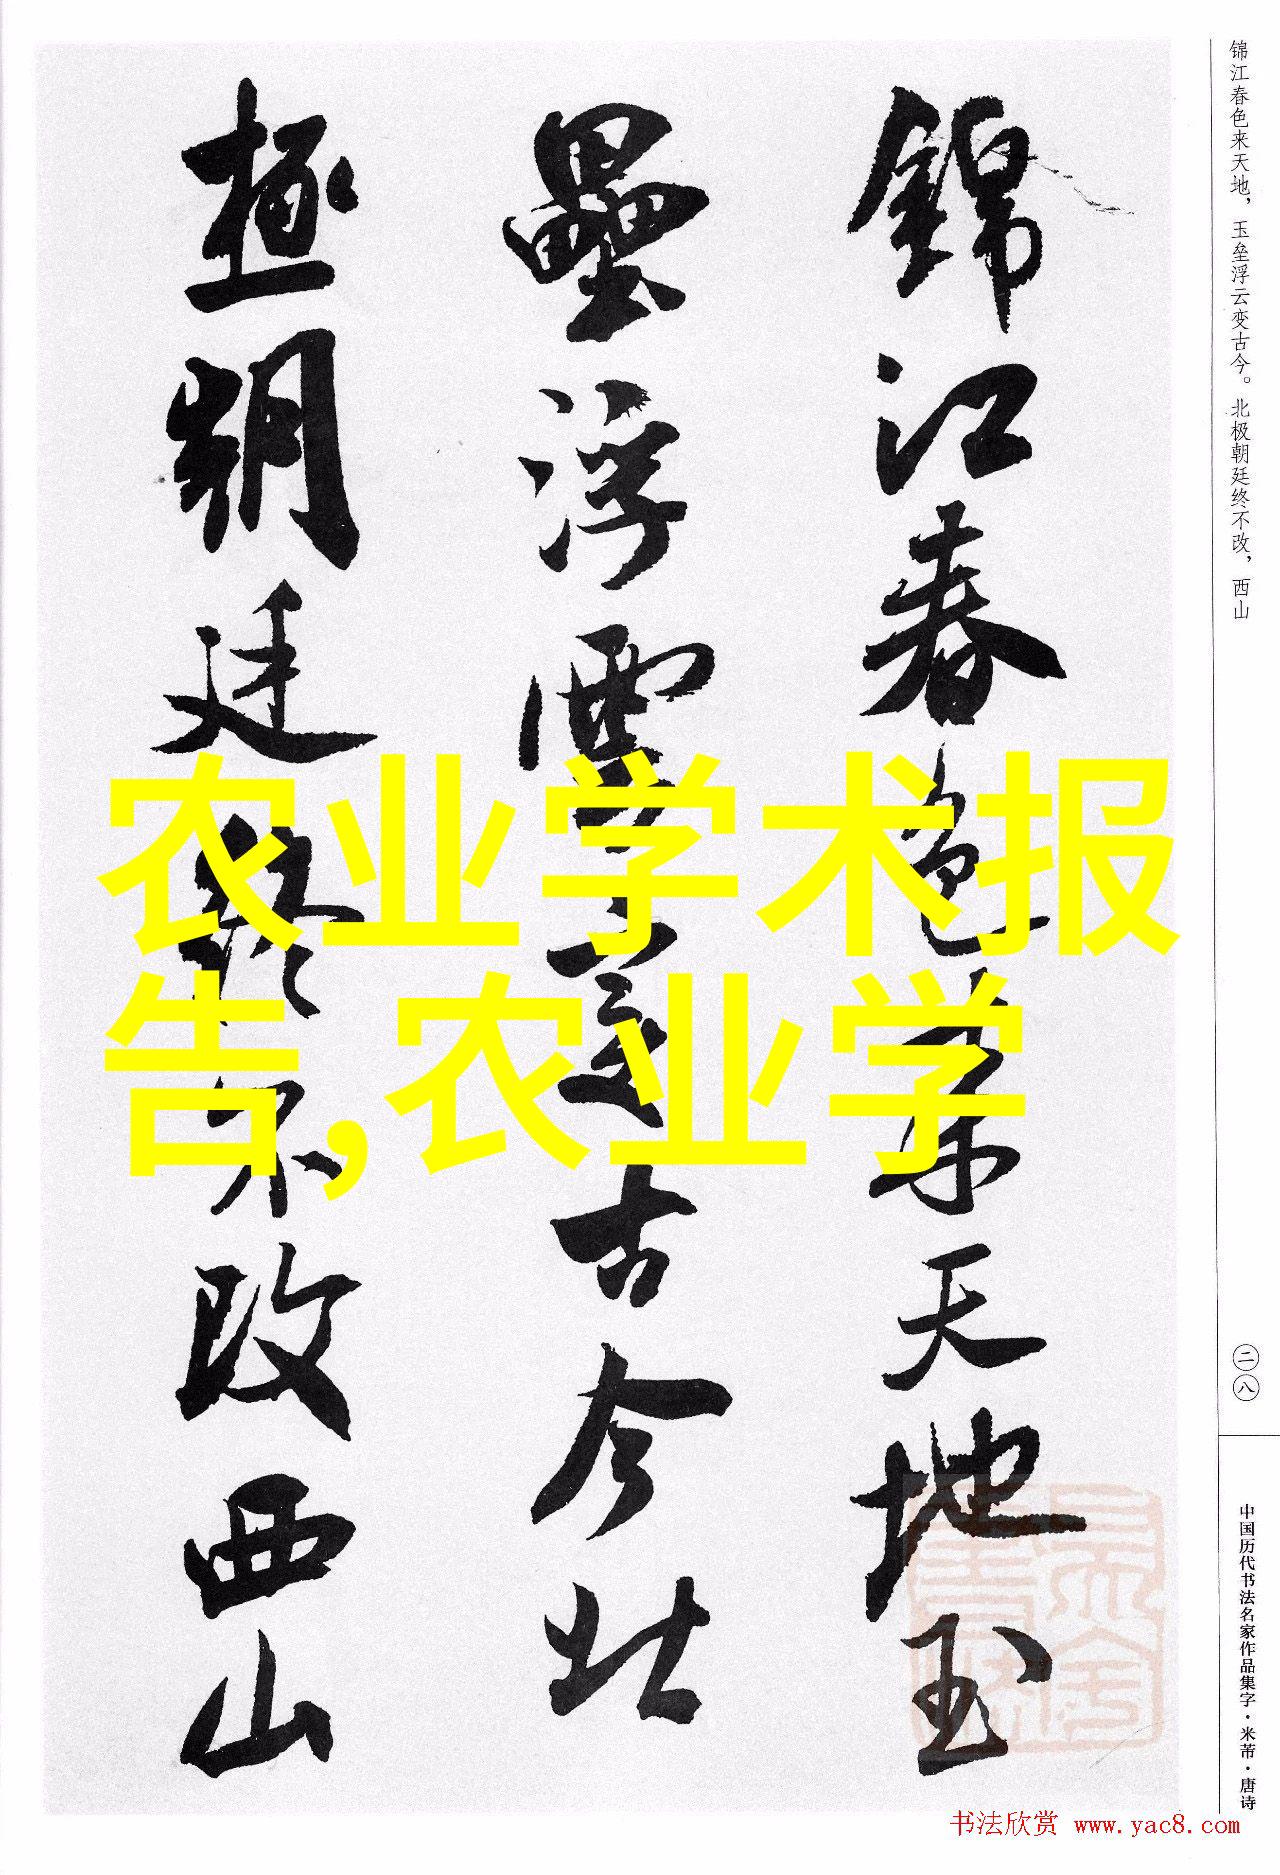 锦江春色来天地，玉垒浮云变古今。北极朝廷终不改，西山
錦江春色來天地玉
壘浮雲變古今北
極朝廷終不改西山
农业学术报
告,农业学
二八
中国历代书法名家作品集字·米芾·唐诗
书法欣赏 www.yac8.com